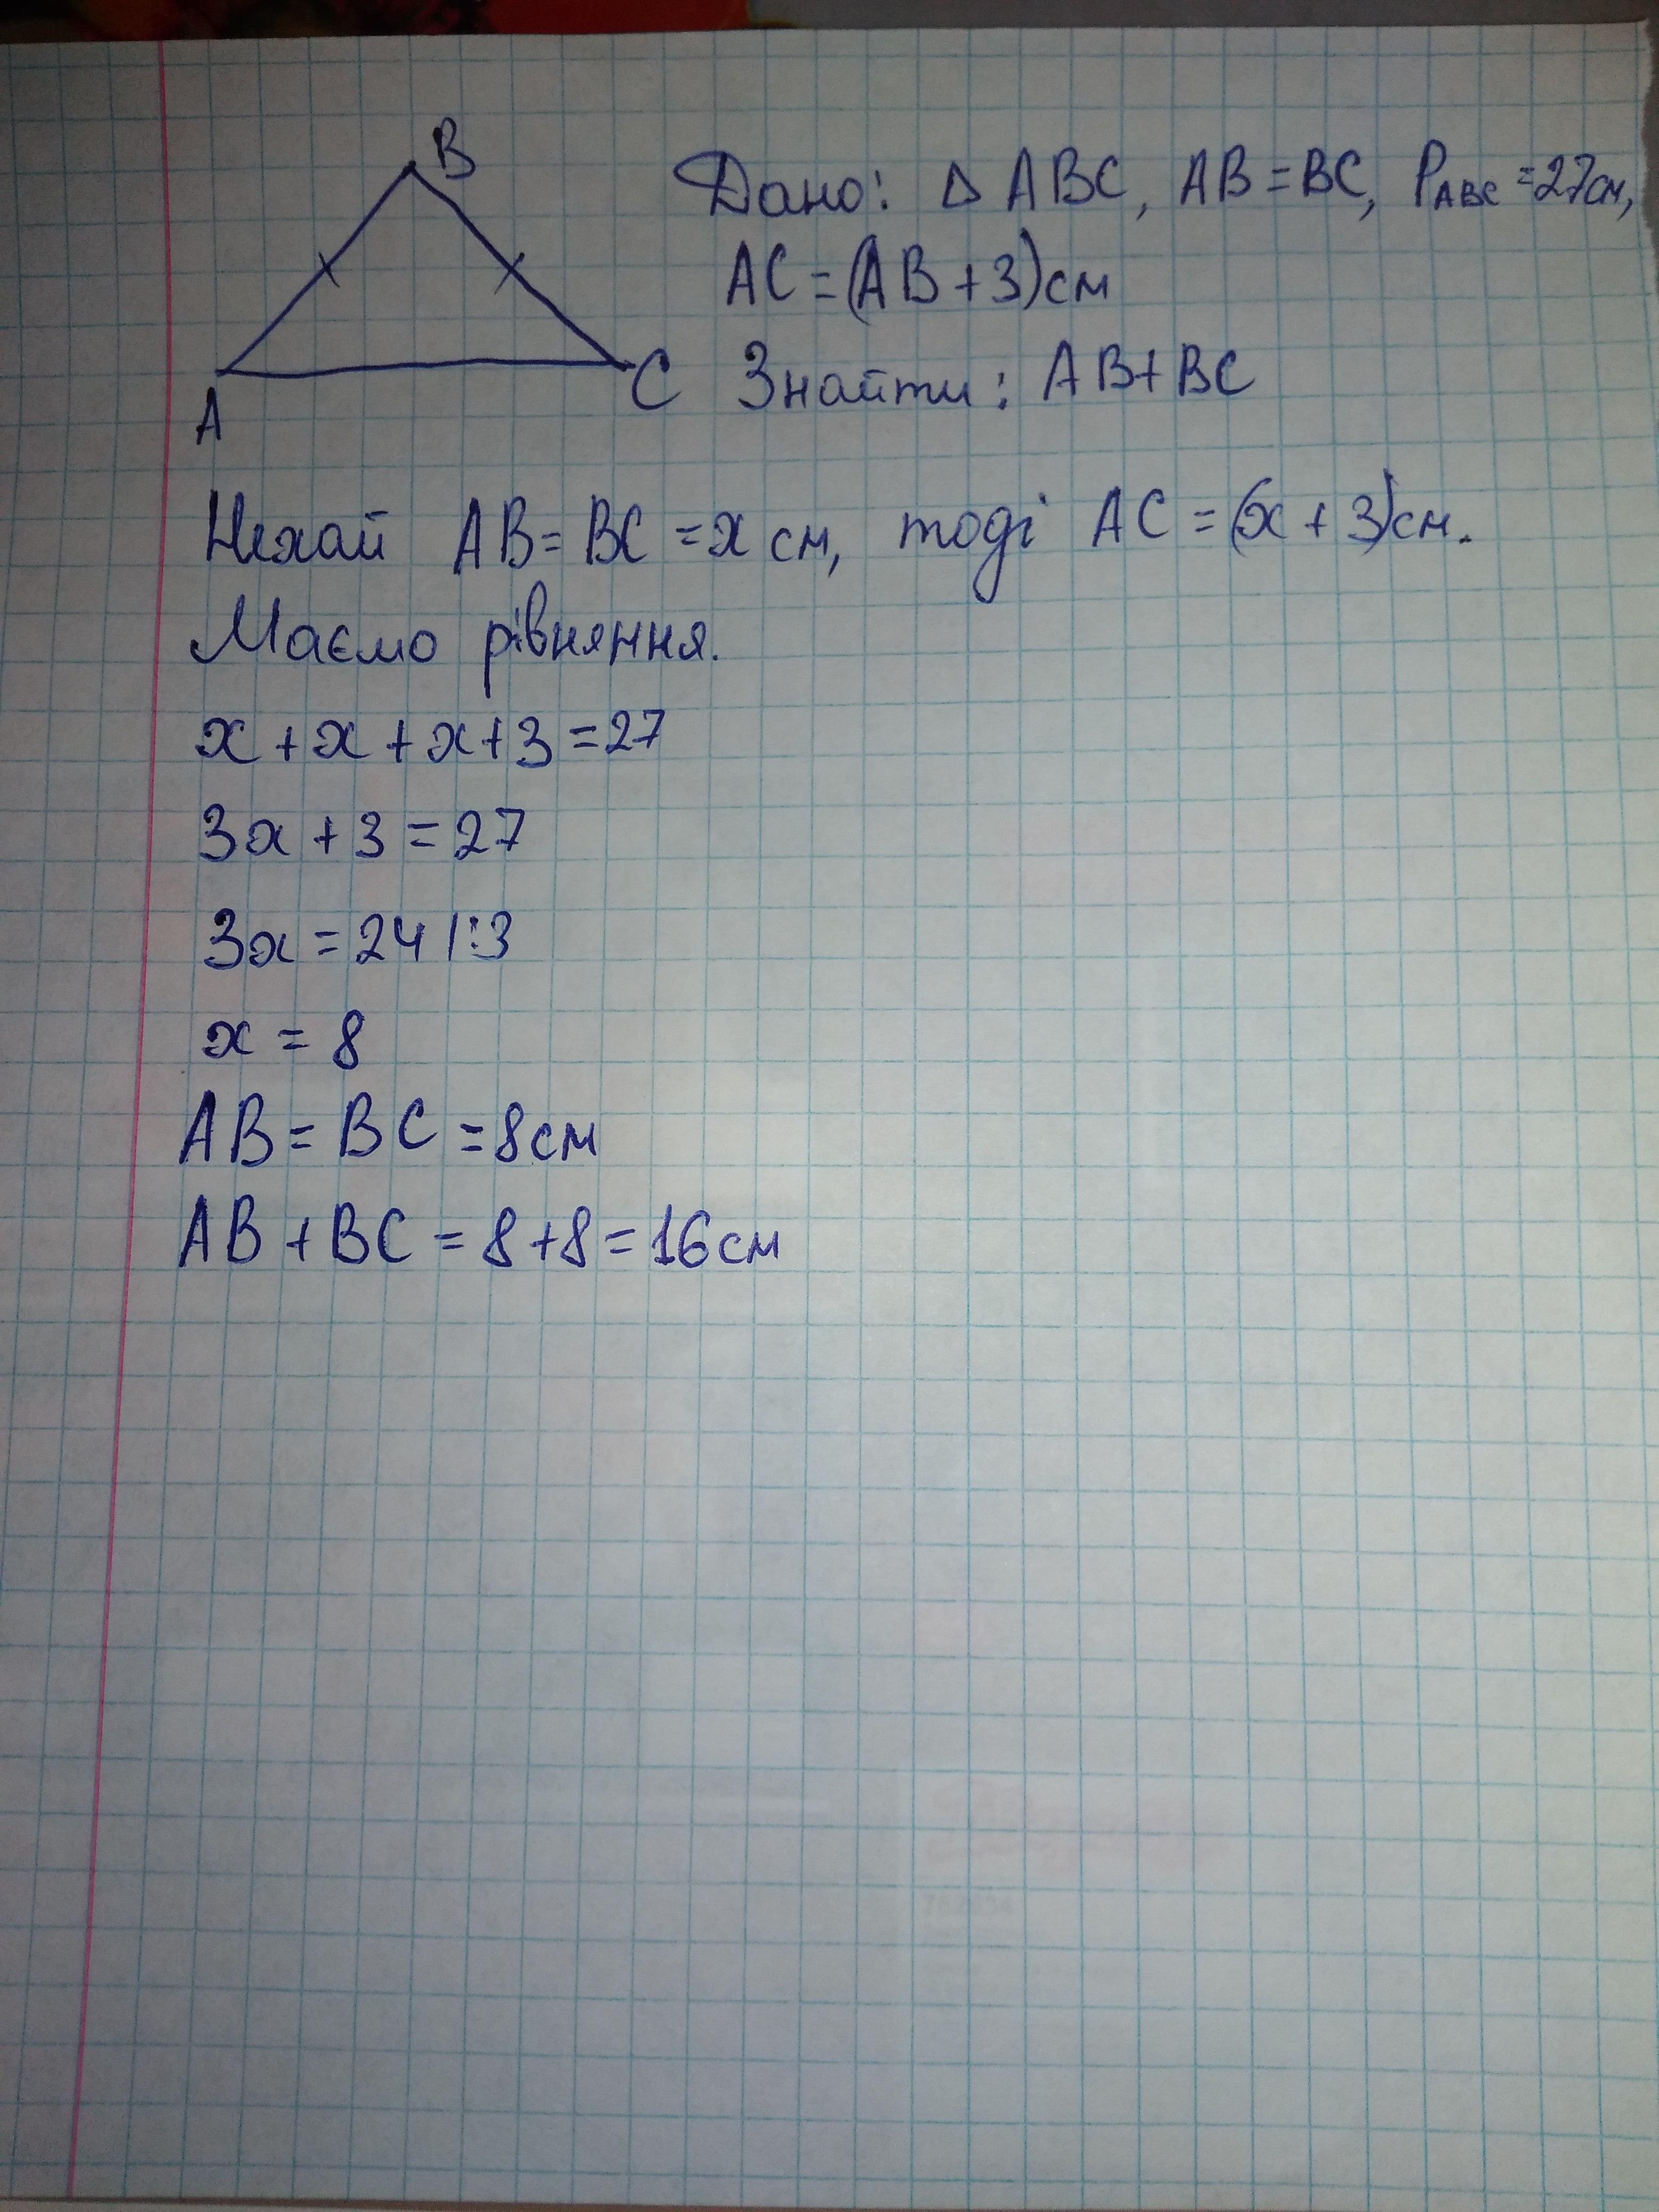 B
Дано: Δ ABC, AB=BC, P_ABC=27см,
AC=(AB+3)см
A
C
Знайти: AB+BC
Нехай AB=BC=x см, тоді AC=(x+3)см.
Маємо рівняння.
x+x+x+3=27
3x+3=27
3x=24 |:3
x=8
AB=BC=8см
AB+BC=8+8=16см